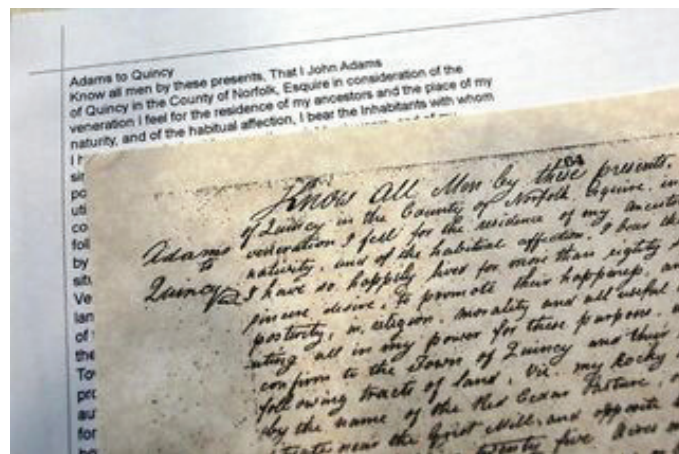 Adams to Quincy
Know all men by these presents, That I John Adams
of Quincy in the County of Norfolk, Esquire in consideration of the
veneration I feel for the residence of my ancestors and the place of my
naturity, and of the habitual affection, I bear the Inhabitants with whom
I h
sin
po
uti
co
foll
by
situ
Ve
lan
of
the
To
pro
au
for
104
Know All Men by these presents,
of Quincy in the County of Norfolk Esquire, in
veneration I fell for the residence of my ancest
naturity, and of the habitual affection, I bear th
I have so happily lived for more than eighty
sincere desire, to promote their happiness, an
posterity, in religion, morality and all useful
uting all in my power for these purpose,
confirm to the Town of Quincy and their
following tracts of land, Viz. my Rocky
by the name of the Red Cedar Pasture,
situate near the Grist Mill, and opposite
five Acres
Adams
to
Quincy